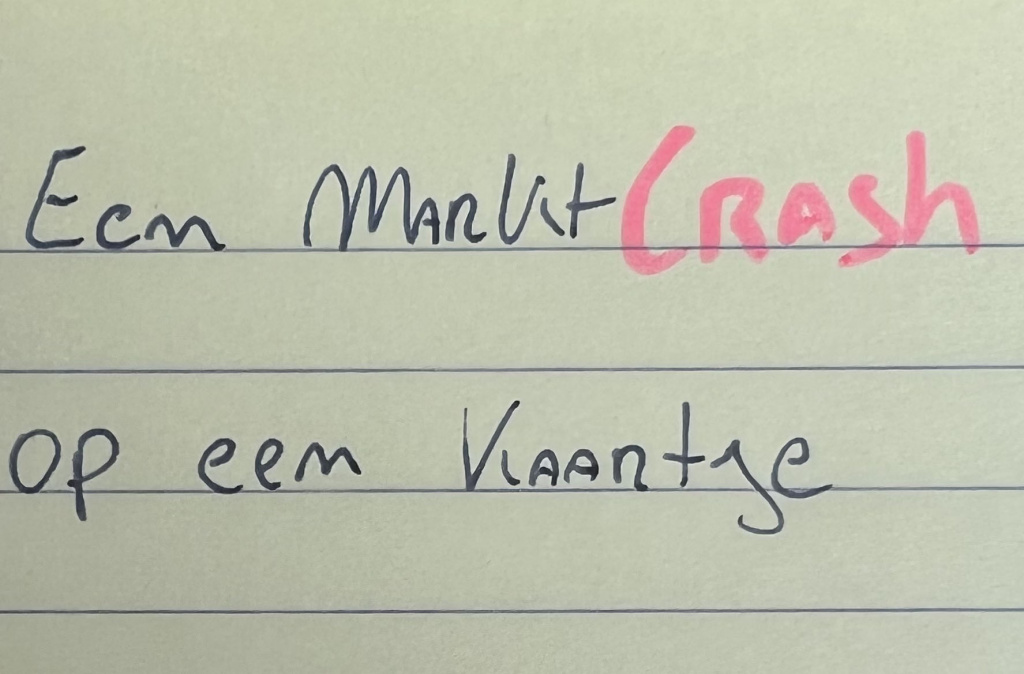 Een MarktCrash
op een Kaartje